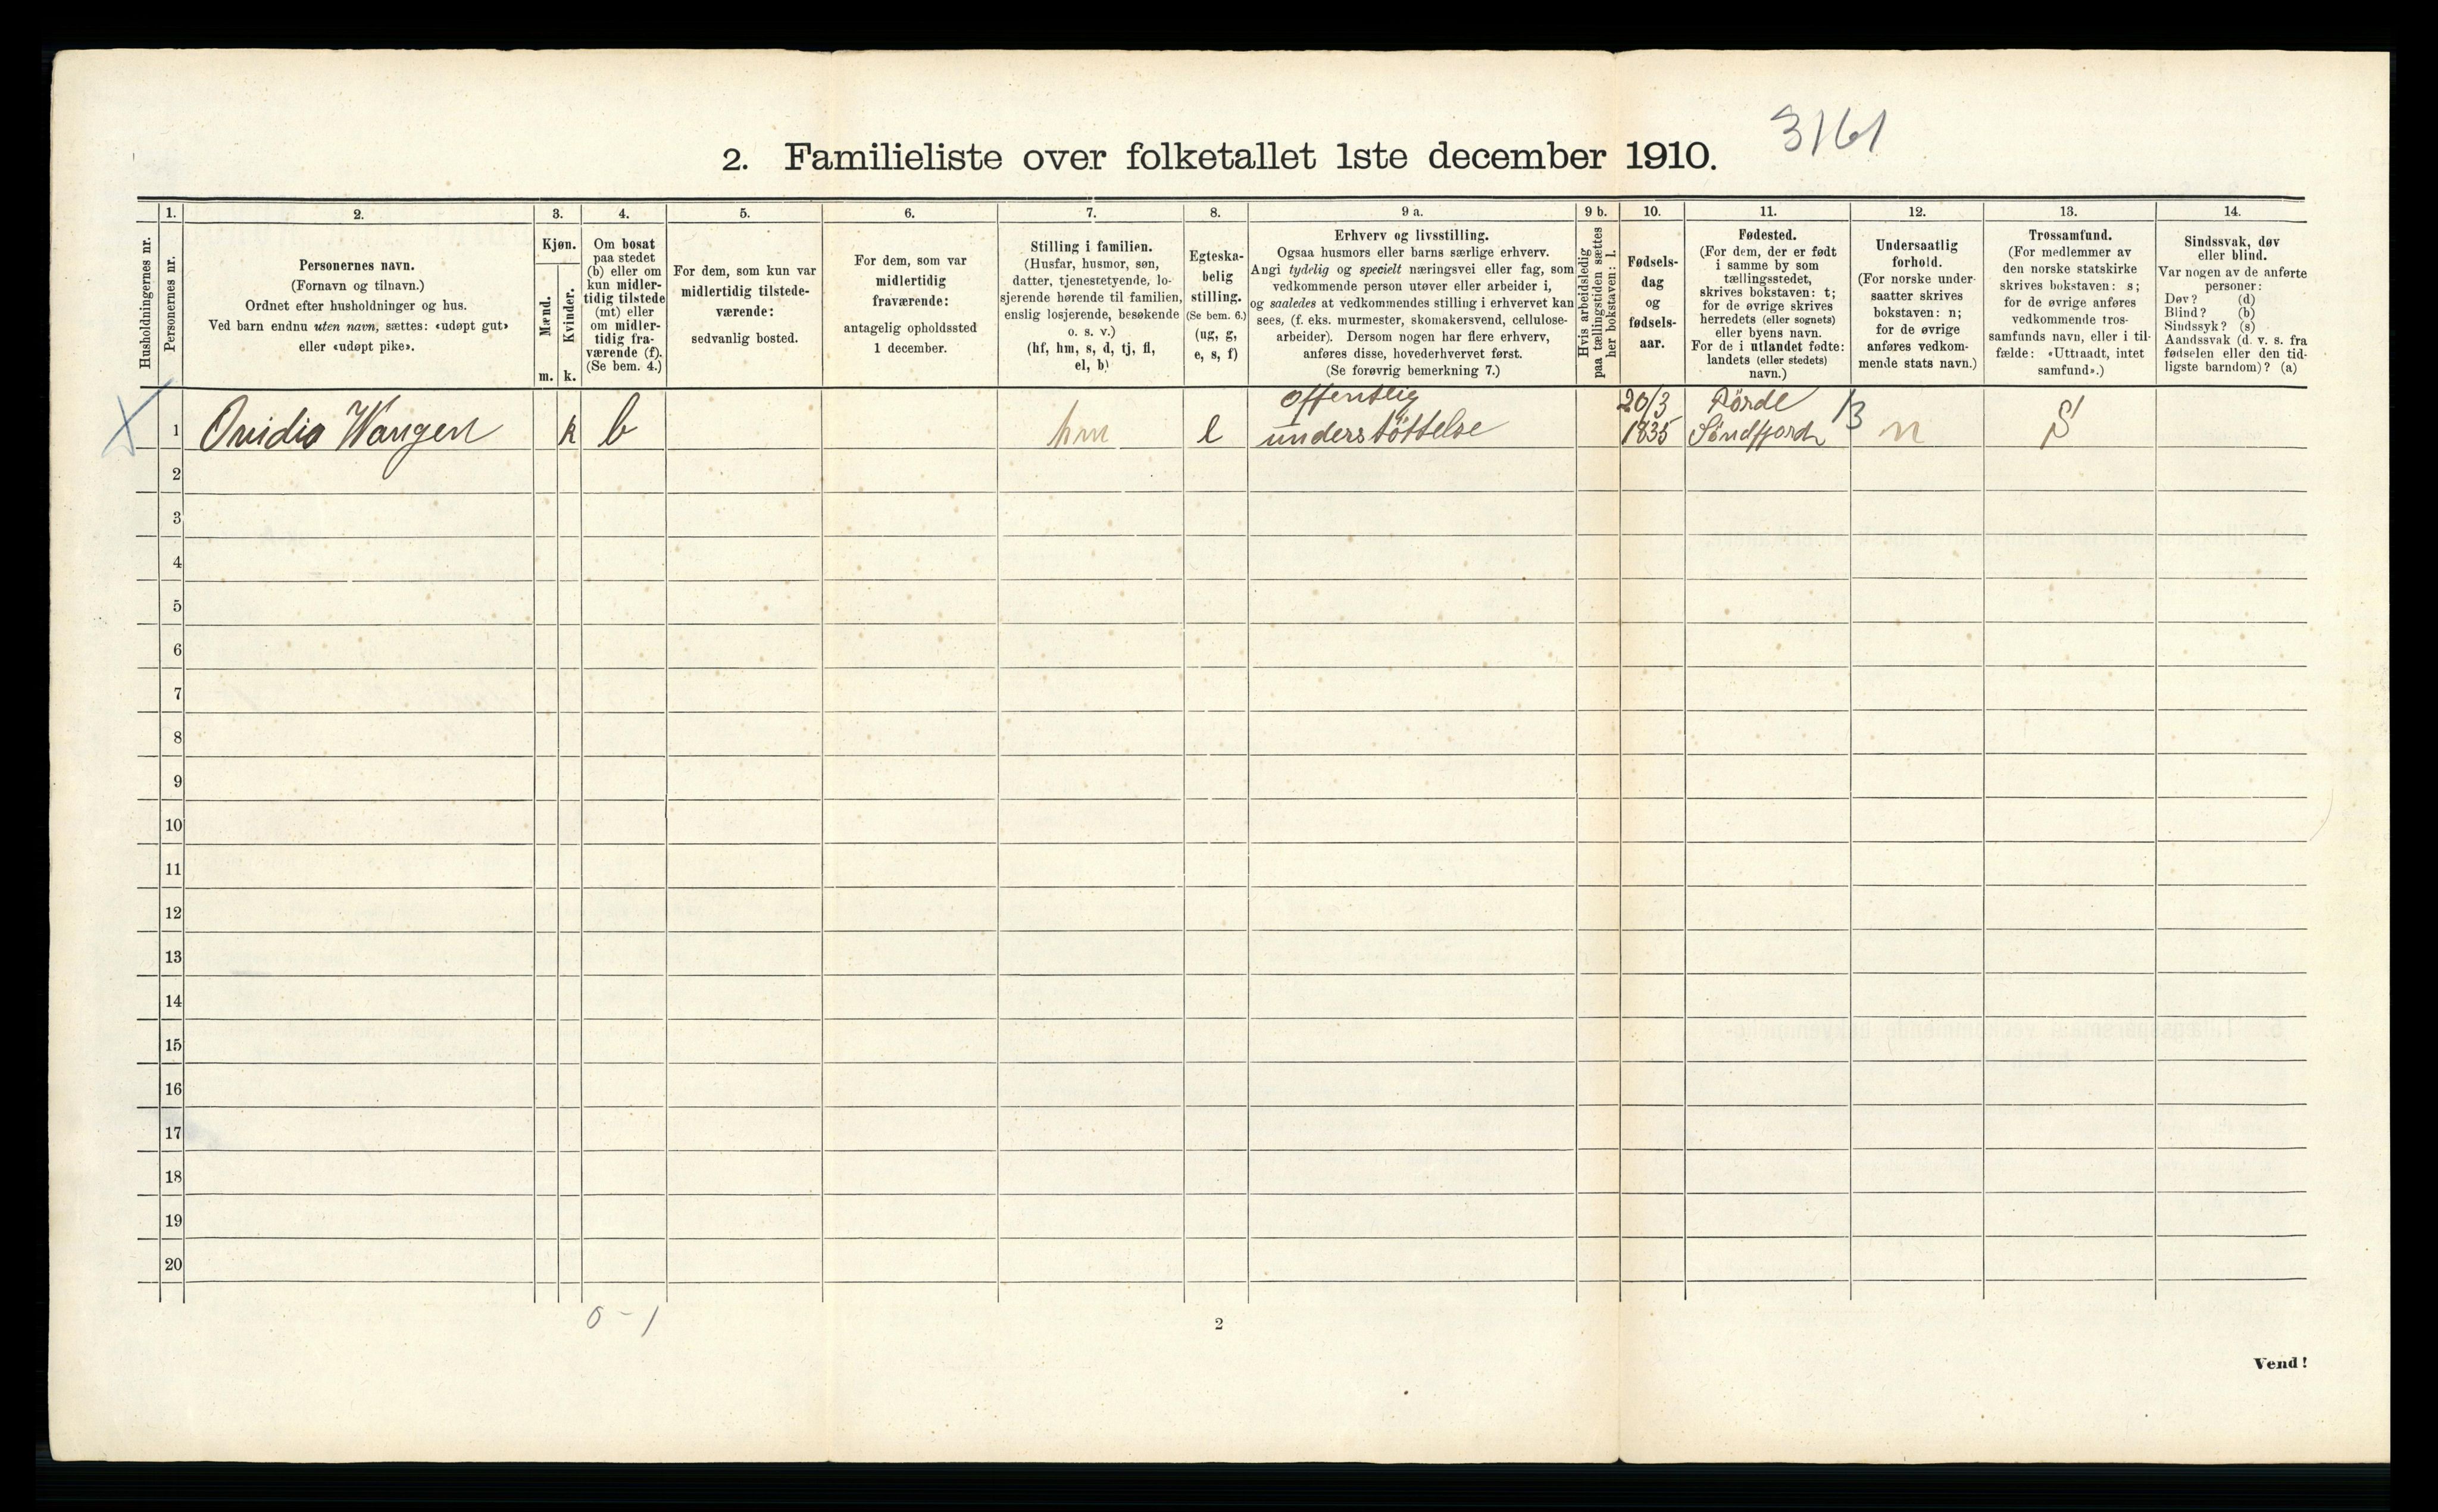 3161
2. Familieliste over folketallet 1ste december 1910.
Husholdningernes nr.
1.
Personernes nr.
2.
Personernes navn.
(Fornavn og tilnavn.)
Ordnet efter husholdninger og hus.
Ved barn endnu uten navn, sættes: «udøpt gut»
eller «udøpt pike».
3.
Kjøn.
Mænd.
Kvinder.
m. k.
4.
Om bosat
paa stedet
(b) eller om
kun midler-
tidig tilstede
(mt) eller
om midler-
tidig fra-
værende (f).
(Se bem. 4.)
5.
For dem, som kun var
midlertidig tilstede-
værende:
sedvanlig bosted.
6.
For dem, som var
midlertidig
fraværende:
antagelig opholdssted
1 december.
7.
Stilling i familien.
(Husfar, husmor, søn,
datter, tjenestetyende, lo-
sjerende hørende til familien,
enslig losjerende, besøkende
o. s. v.)
(hf, hm, s, d, tj, fl,
el, b)
8.
Egteska-
belig
stilling.
(Se bem. 6.)
(ug, g,
e, s, f)
9 a.
Erhverv og livsstilling.
Ogsaa husmors eller barns særlige erhverv.
Angi tydelig og specielt næringsvei eller fag, som
vedkommende person utøver eller arbeider i,
og saaledes at vedkommendes stilling i erhvervet kan
sees, (f. eks. murmester, skomakersvend, cellulose-
arbeider). Dersom nogen har flere erhverv,
anføres disse, hovederhvervet først.
(Se forøvrig bemerkning 7.)
9 b.
Hvis arbeidsledig
paa tællingstiden sættes
her bokstaven: l.
10.
Fødsels-
dag
og
fødsels-
aar.
11.
Fødested.
(For dem, der er født
i samme by som
tællingsstedet,
skrives bokstaven: t;
for de øvrige skrives
herredets (eller sognets)
eller byens navn.
For de i utlandet fødte:
landets (eller stedets)
navn.)
12.
Undersaatlig
forhold.
(For norske under-
saatter skrives
bokstaven: n;
for de øvrige
anføres vedkom-
mende stats navn.)
13.
Trossamfund.
(For medlemmer av
den norske statskirke
skrives bokstaven: s;
for de øvrige anføres
vedkommende tros-
samfunds navn, eller i til-
fælde: «Uttraadt, intet
samfund».)
14.
Sindssvak, døv
eller blind.
Var nogen av de anførte
personer:
Døv? (d)
Blind? (b)
Sindssyk? (s)
Aandssvak (d. v. s. fra
fødselen eller den tid-
ligste barndom)? (a)
offentlig 20/3 Förde 13
1 Ovidia Wangen k b hm e understöttelse 1835 Söndfjord n S
2
3
4
5
6
7
8
9
10
11
12
13
14
15
16
17
18
19
20
0 - 1
2
Vend!